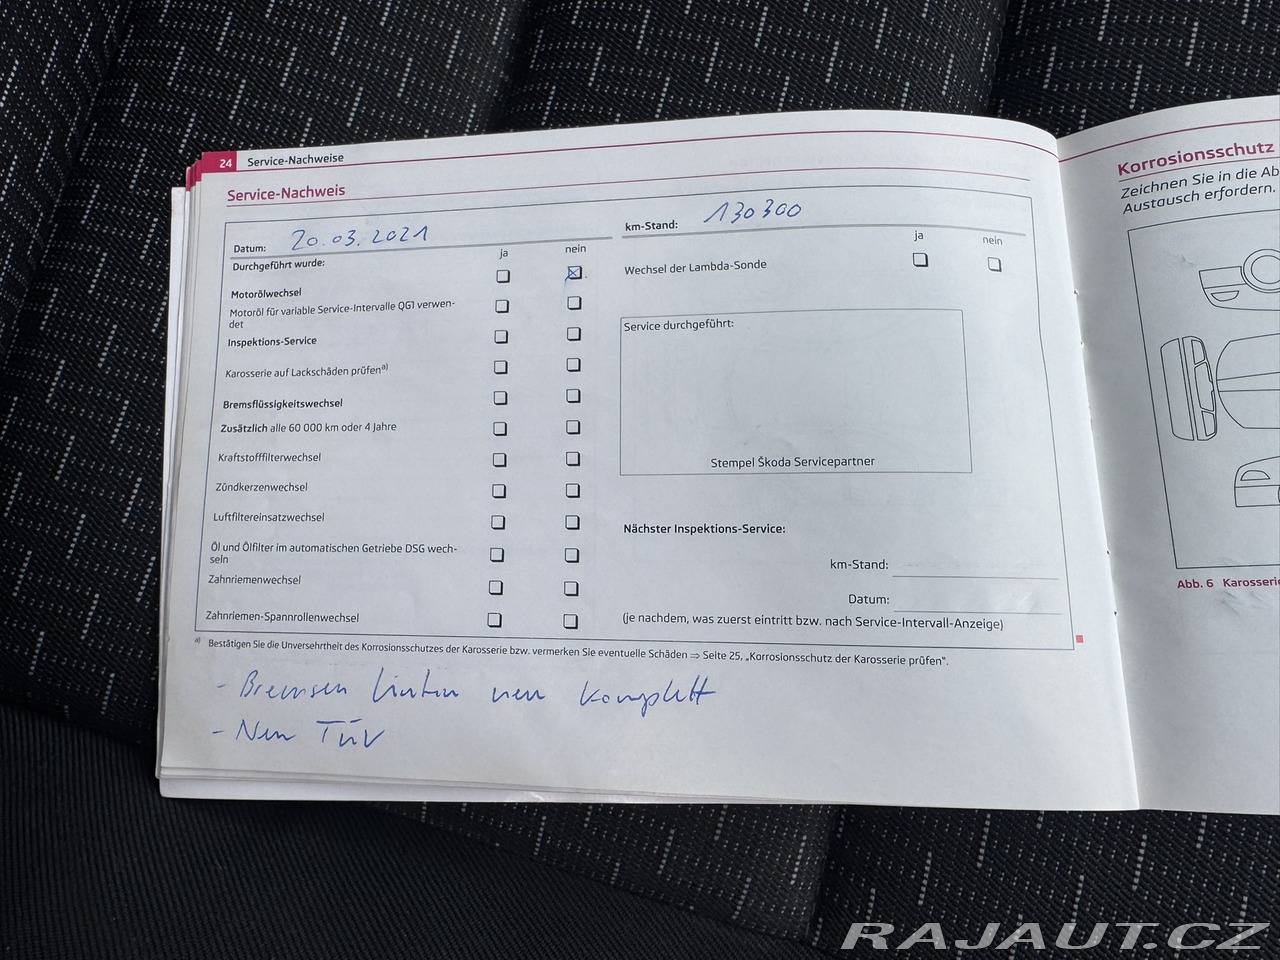 24 Service-Nachweise
Service-Nachweis
Datum: 20.03.2021
km-Stand: 130300
ja nein
ja nein
Durchgeführt wurde:
Motorölwechsel
Motoröl für variable Service-Intervalle QG1 verwen-
det
Inspektions-Service
Karosserie auf Lackschäden prüfen a)
Bremsflüssigkeitswechsel
Zusätzlich alle 60 000 km oder 4 Jahre
Kraftstofffilterwechsel
Zündkerzenwechsel
Luftfiltereinsatzwechsel
Öl und Ölfilter im automatischen Getriebe DSG wech-
seln
Zahnriemenwechsel
Zahnriemen-Spannrollenwechsel
Wechsel der Lambda-Sonde
Service durchgeführt:
Stempel Škoda Servicepartner
Nächster Inspektions-Service:
km-Stand:
Datum:
(je nachdem, was zuerst eintritt bzw. nach Service-Intervall-Anzeige)
a) Bestätigen Sie die Unversehrtheit des Korrosionsschutzes der Karosserie bzw. vermerken Sie eventuelle Schäden ⇒ Seite 25, „Korrosionsschutz der Karosserie prüfen“.
- Bremsen hinten neu komplett
- Neu TÜV
Korrosionsschutz
Zeichnen Sie in die Ab
Austausch erfordern.
Abb. 6 Karosserie
RAJAUT.CZ